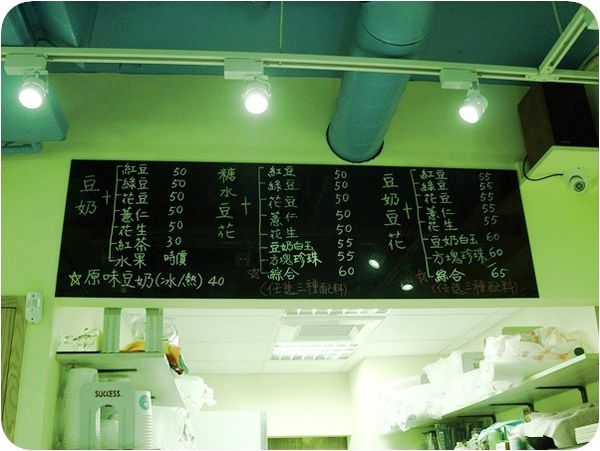 豆奶 +
紅豆 50
綠豆 50
花豆 50
薏仁 50
花生 50
紅茶 30
水果 時價
☆原味豆奶(冰/熱) 40
糖水豆花 +
紅豆 50
綠豆 50
花豆 50
薏仁 50
花生 50
豆奶白玉 55
方塊珍珠 55
☆綜合 60
(任選三種配料)
豆奶豆花 +
紅豆 55
綠豆 55
花豆 55
薏仁 55
花生 55
豆奶白玉 60
方塊珍珠 60
☆綜合 65
(任選三種配料)
SUCCESS